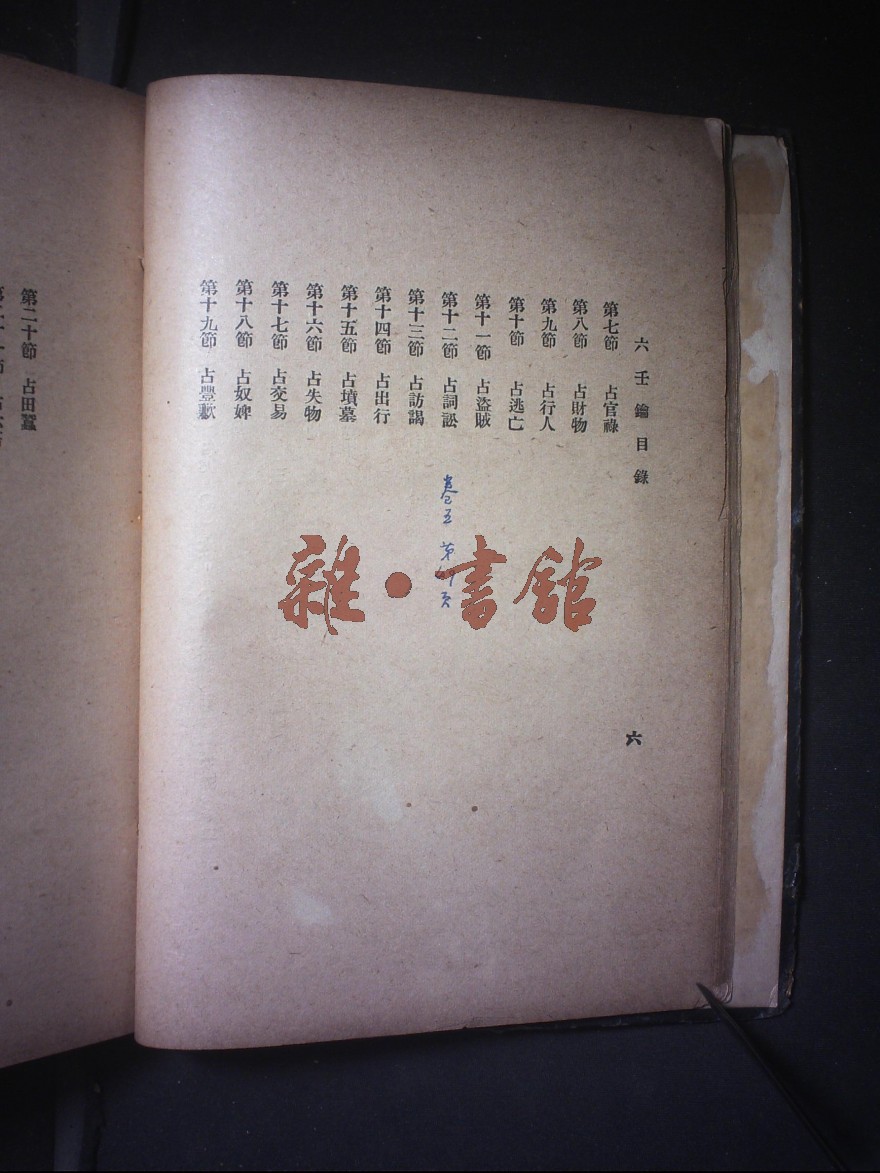 六壬鑰目錄
第七節 占官祿
第八節 占財物
第九節 占行人
第十節 占逃亡
第十一節 占盜賊
第十二節 占詞訟
第十三節 占訪謁
第十四節 占出行
第十五節 占墳墓
第十六節 占失物
第十七節 占交易
第十八節 占奴婢
第十九節 占豐歉
六
卷五 第 頁
雜·書館
第二十節 占田蠶